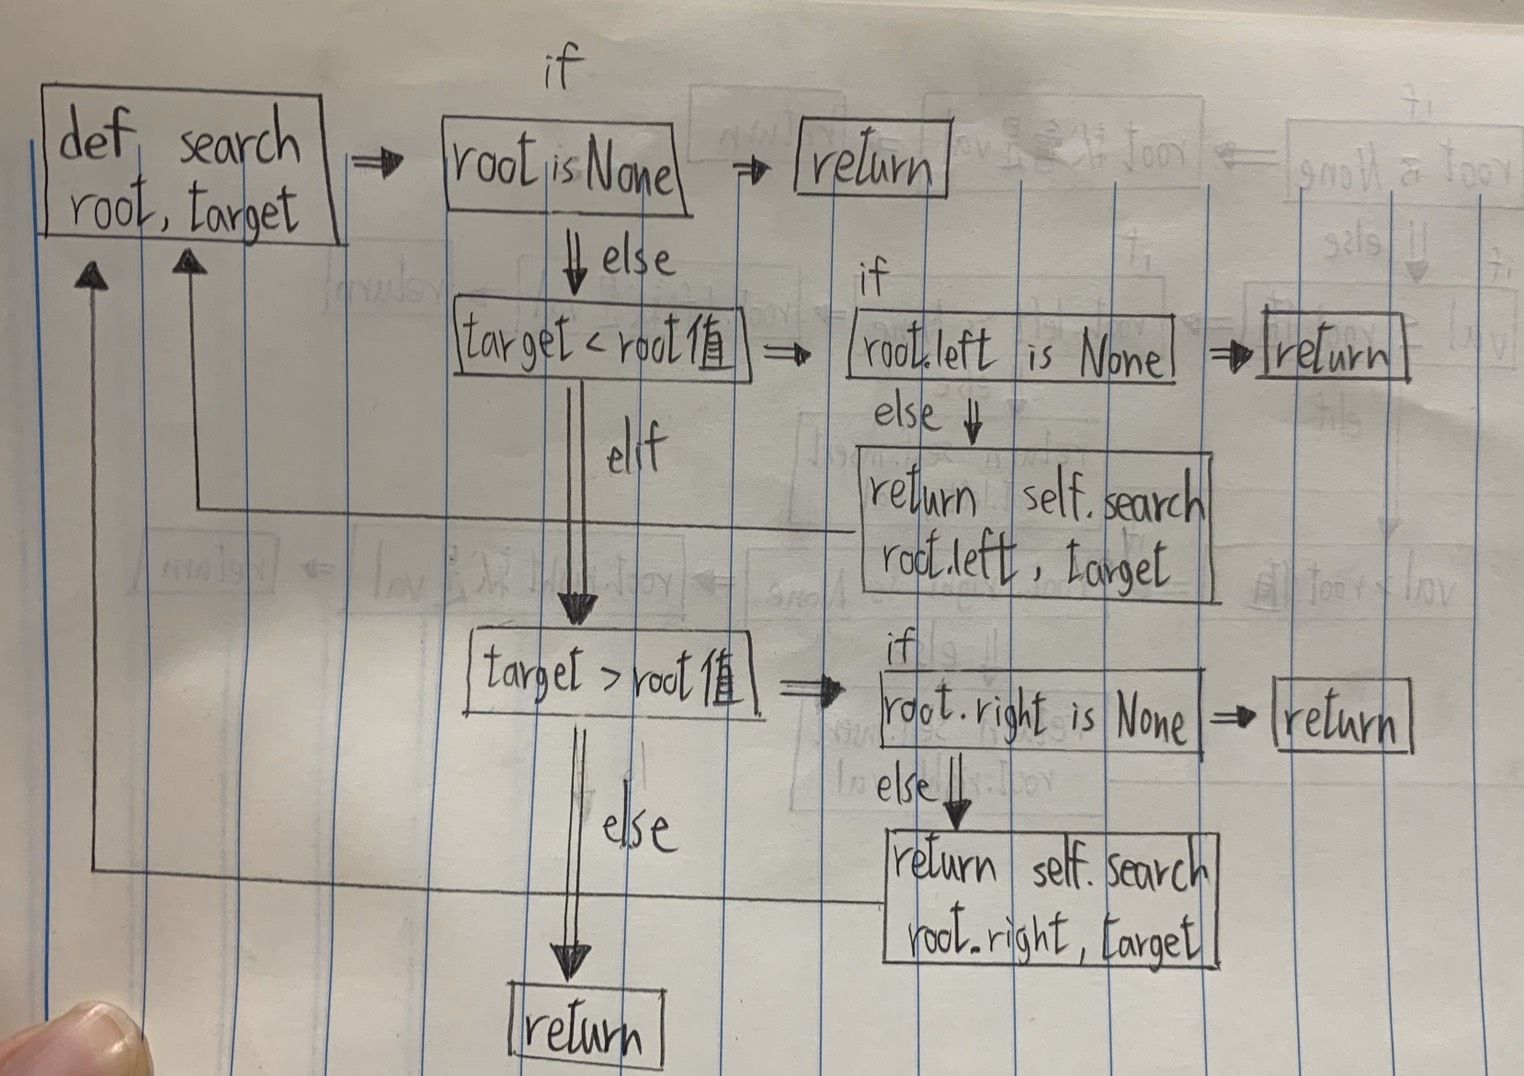 if
def search
root, target
root is None
return
else
target < root值
if
root.left is None
return
else
return self.search
root.left, target
elif
target > root值
if
root.right is None
return
else
return self.search
root.right, target
else
return